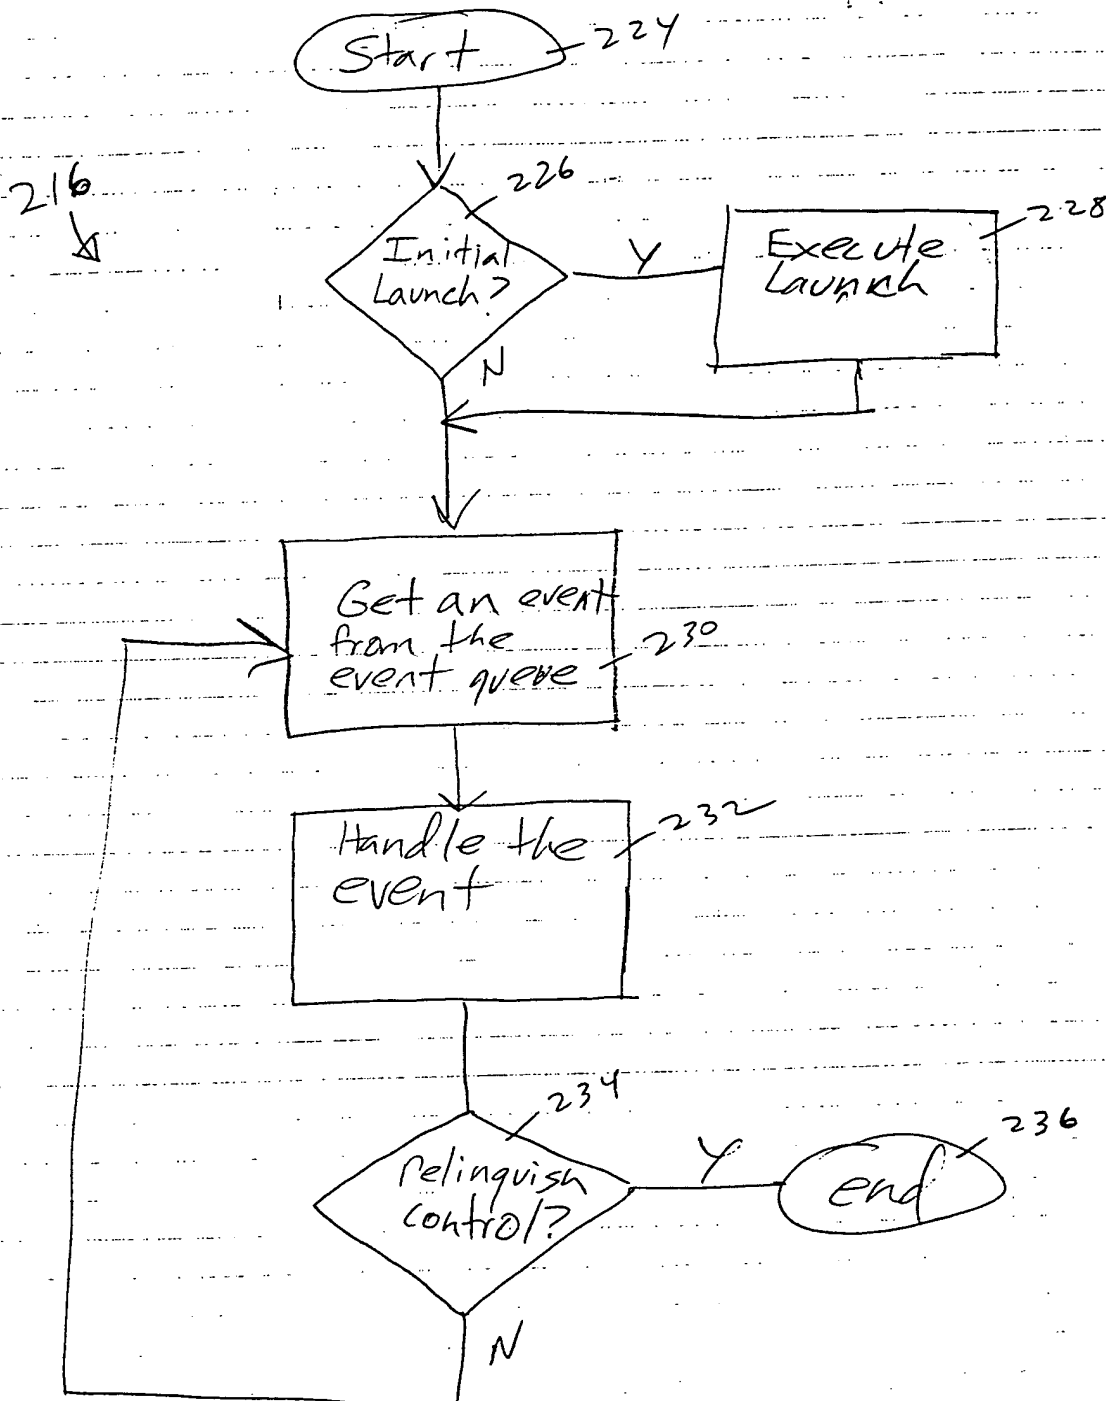 Start
224
216
226
Initial
Launch?
Y
228
Execute
Launch
N
Get an event
from the
event queue
230
Handle the
event
232
234
relinquish
control?
Y
236
end
N